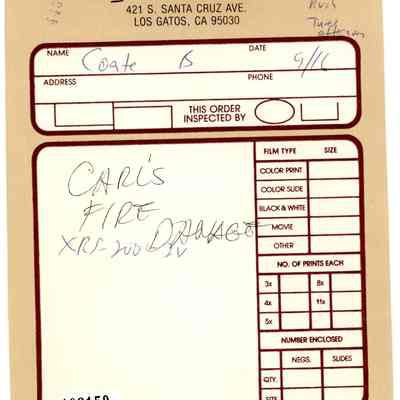 421 S. SANTA CRUZ AVE.
LOS GATOS, CA 95030
Rush
Tues
NAME Coate B DATE 9/16
ADDRESS PHONE
THIS ORDER
INSPECTED BY
CARL'S
FIRE
DAMAGE
XRS-200
FILM TYPE SIZE
COLOR PRINT
COLOR SLIDE
BLACK & WHITE
MOVIE
OTHER
NO. OF PRINTS EACH
3x 8x
4x 11x
5x
NUMBER ENCLOSED
NEGS. SLIDES
QTY.
SIZE